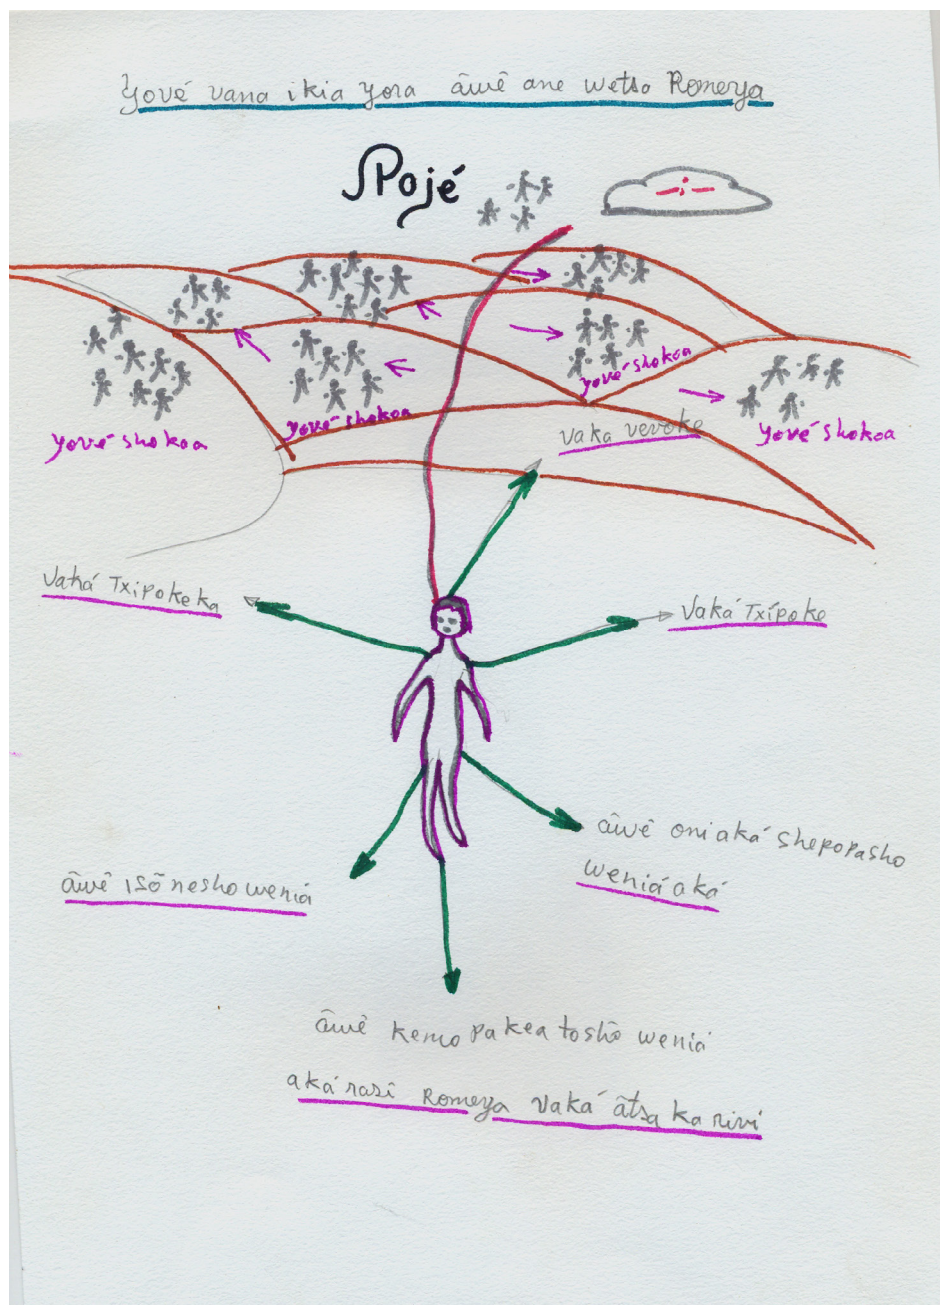 Yové vana ikia yora ãwẽ ane wetsa Romeya
Pojé
yové shokoa
yové shokoa
yové shokoa
yové shokoa
vaka vevoke
vaká Txipokeka
vaká Txipoke
ãwẽ oniaká shepopasho
weniá aká
ãwẽ isõ nesho weniá
ãwẽ kemo pakea toshõ weniá
aká rasĩ Romeya vaká ãtsa ka riví